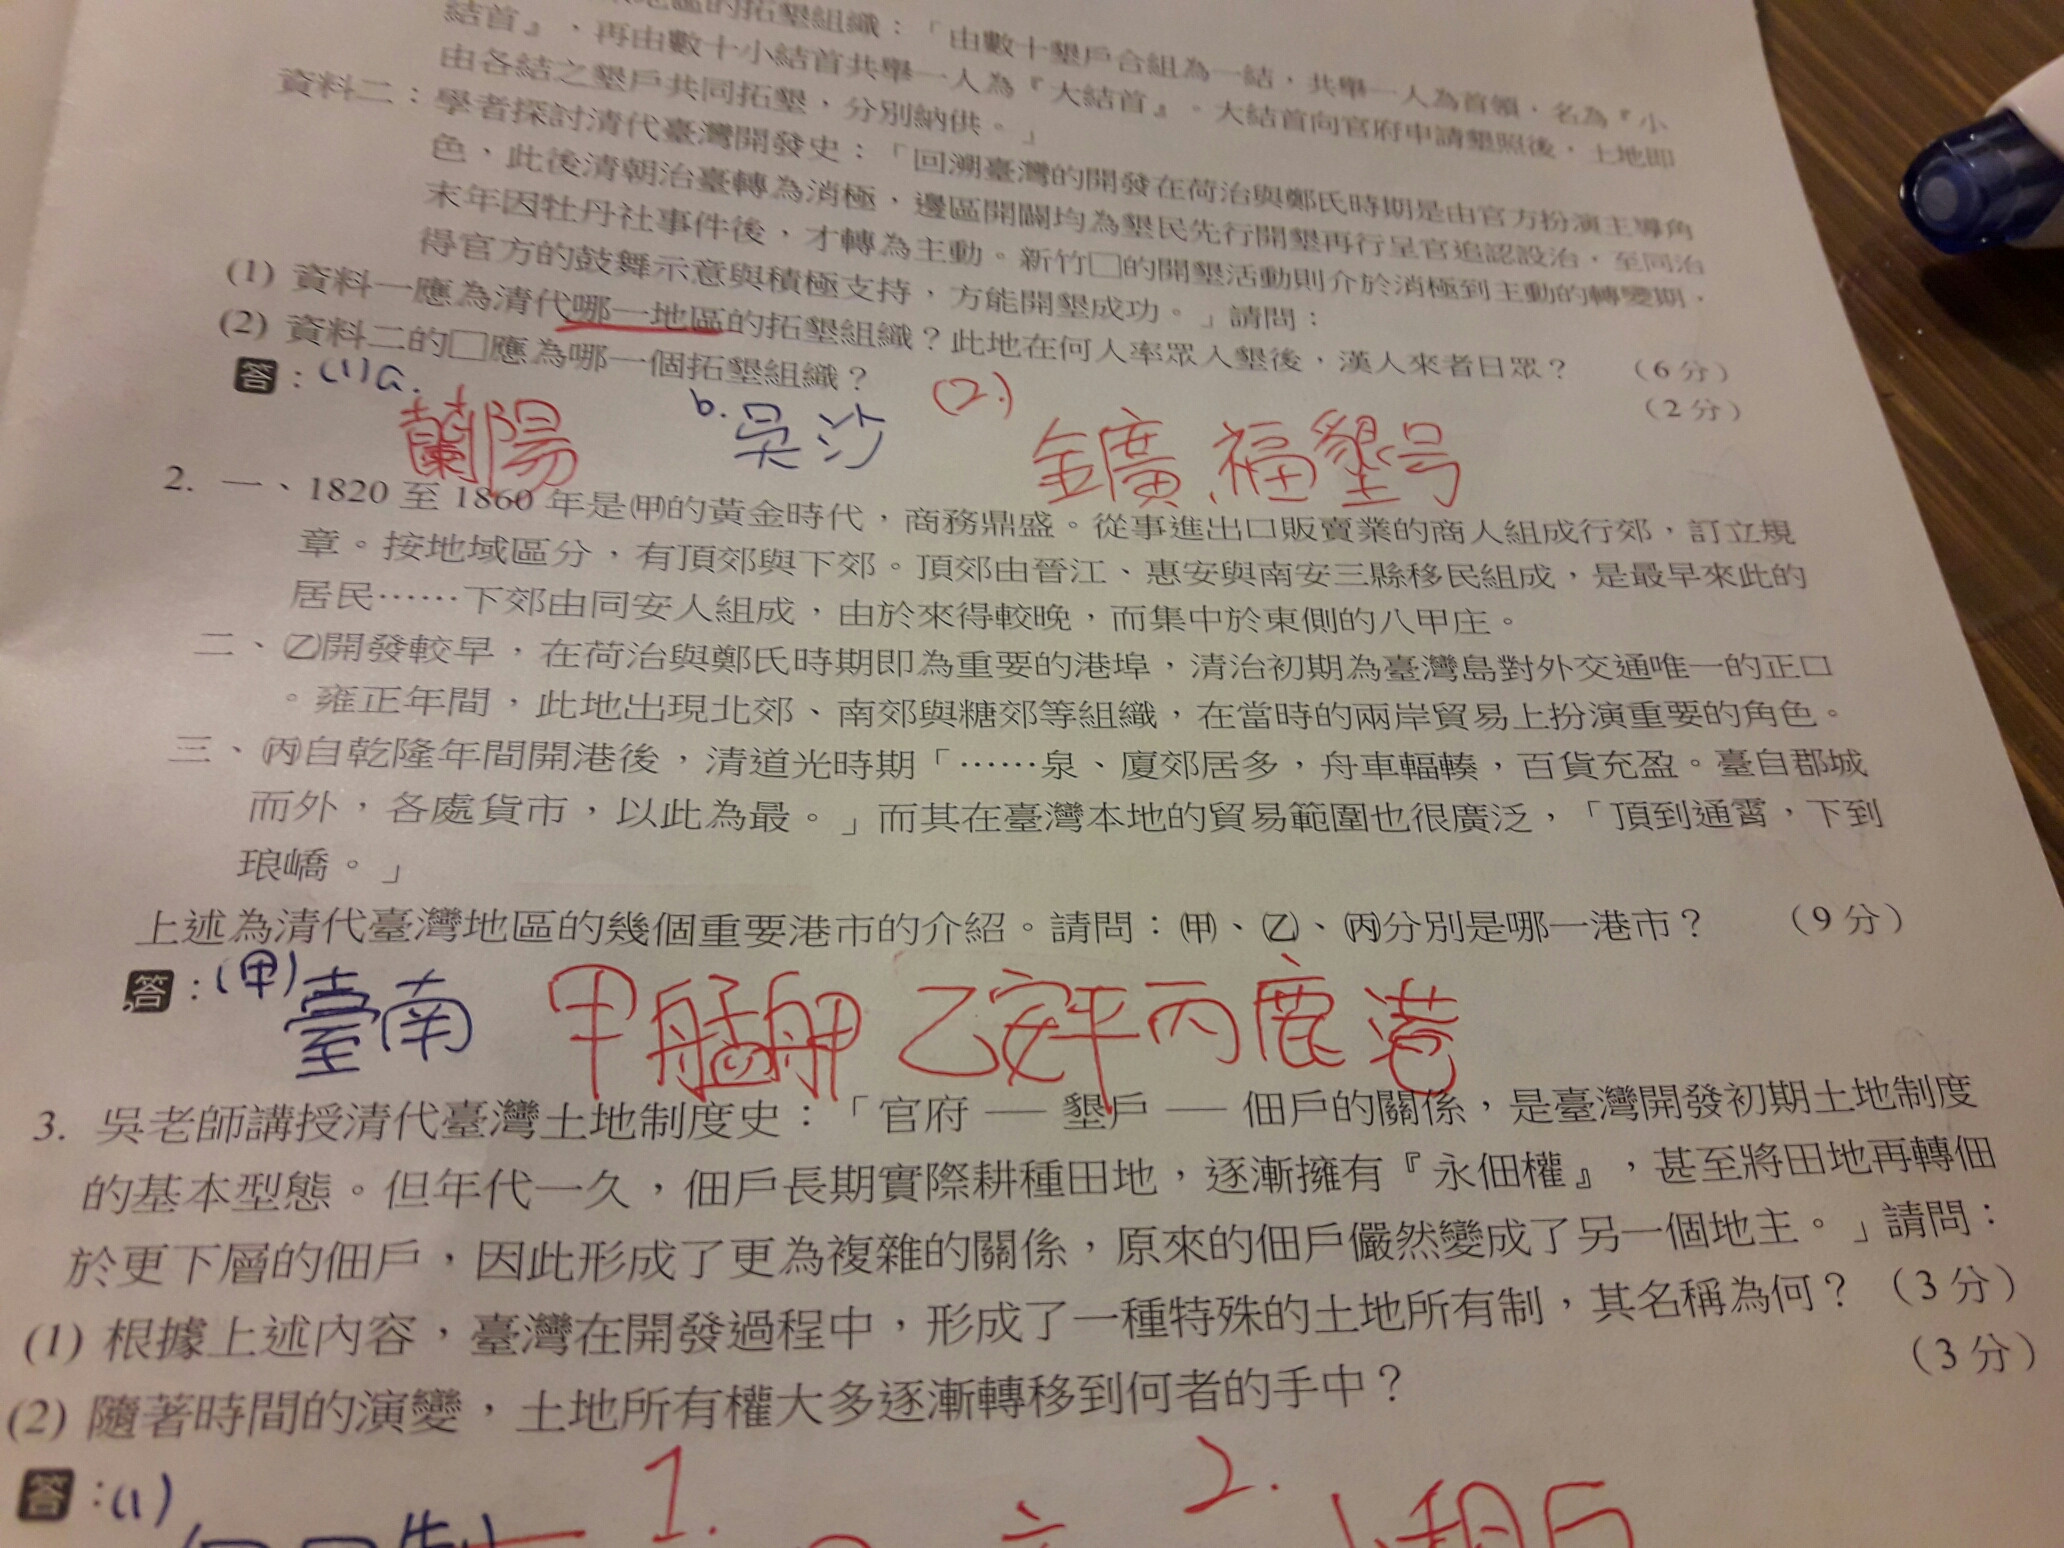 地區的拓墾組織：「由數十墾戶合組為一結，共舉一人為首領，名為『小
結首』，再由數十小結首共舉一人為『大結首』。大結首向官府申請墾照後，土地即
由各結之墾戶共同拓墾，分別納供。」
資料二：學者探討清代臺灣開發史：「回溯臺灣的開發在荷治與鄭氏時期是由官方扮演主導角
色，此後清朝治臺轉為消極，邊區開闢均為墾民先行開墾再行呈官追認設治，至同治
末年因牡丹社事件後，才轉為主動。新竹□的開墾活動則介於消極到主動的轉變期，
得官方的鼓舞示意與積極支持，方能開墾成功。」請問：
(1) 資料一應為清代哪一地區的拓墾組織？此地在何人率眾入墾後，漢人來者日眾？ （6 分）
(2) 資料二的□應為哪一個拓墾組織？ （2 分）
答：(1)a. 蘭陽 b. 吳沙 (2.) 金廣福墾号
2. 一、1820 至 1860 年是㈣的黃金時代，商務鼎盛。從事進出口販賣業的商人組成行郊，訂立規
章。按地域區分，有頂郊與下郊。頂郊由晉江、惠安與南安三縣移民組成，是最早來此的
居民……下郊由同安人組成，由於來得較晚，而集中於東側的八甲庄。
二、㊁開發較早，在荷治與鄭氏時期即為重要的港埠，清治初期為臺灣島對外交通唯一的正口
。雍正年間，此地出現北郊、南郊與糖郊等組織，在當時的兩岸貿易上扮演重要的角色。
三、(丙)自乾隆年間開港後，清道光時期「……泉、廈郊居多，舟車輻輳，百貨充盈。臺自郡城
而外，各處貨市，以此為最。」而其在臺灣本地的貿易範圍也很廣泛，「頂到通霄，下到
琅嶠。」
上述為清代臺灣地區的幾個重要港市的介紹。請問：(甲)、(乙)、(丙)分別是哪一港市？ （9 分）
答：(甲)臺南 甲艋舺 乙安平 丙鹿港
3. 吳老師講授清代臺灣土地制度史：「官府 — 墾戶 — 佃戶的關係，是臺灣開發初期土地制度
的基本型態。但年代一久，佃戶長期實際耕種田地，逐漸擁有『永佃權』，甚至將田地再轉佃
於更下層的佃戶，因此形成了更為複雜的關係，原來的佃戶儼然變成了另一個地主。」請問：
(1) 根據上述內容，臺灣在開發過程中，形成了一種特殊的土地所有制，其名稱為何？（3 分）
(2) 隨著時間的演變，土地所有權大多逐漸轉移到何者的手中？ （3 分）
答：(1) 1. 2. 小租戶